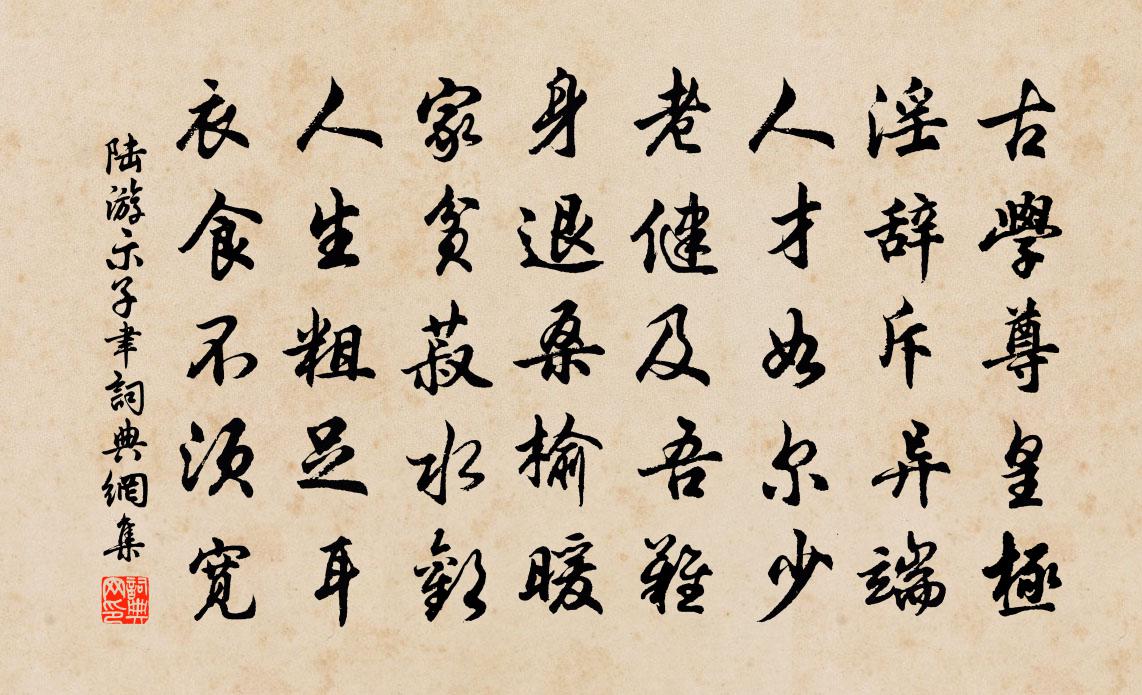 古學尊皇極
淫辞斥异端
人才如尔少
老健及吾難
身退桑榆暖
家貧菽水歡
人生粗足耳
衣食不須寬
陸游示子聿詞典網集
詞典网印